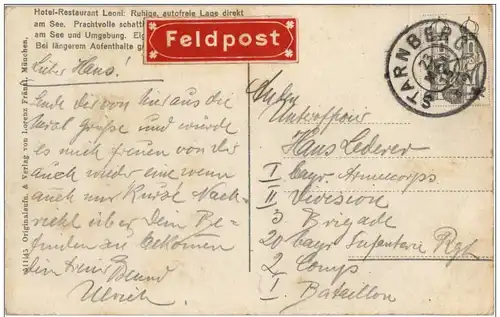 Hotel-Restaurant Leoni: Ruhige, autofreie Lage direkt
am See. Prachtvolle schatt
am See und Umgebung. Eig
Bei längerem Aufenthalte g
Feldpost
STARNBERG
Lieber Hans!
Sende dir von hier aus die
Grüsse und würde
es mich freuen von dir
auch wieder eine wenn
auch nur kurze Nach-
richt über Dein Be-
finden zu bekommen
dein treuer Freund
Ulrich.
Unteroffizier
Hans Lederer
I bayr. Armeecorps
II Division
3 Brigade
20 bayr Infanterie Rgt
2 Comp
I. Bataillon
Originalaufn. & Verlag von Lorenz Fränzl, München.